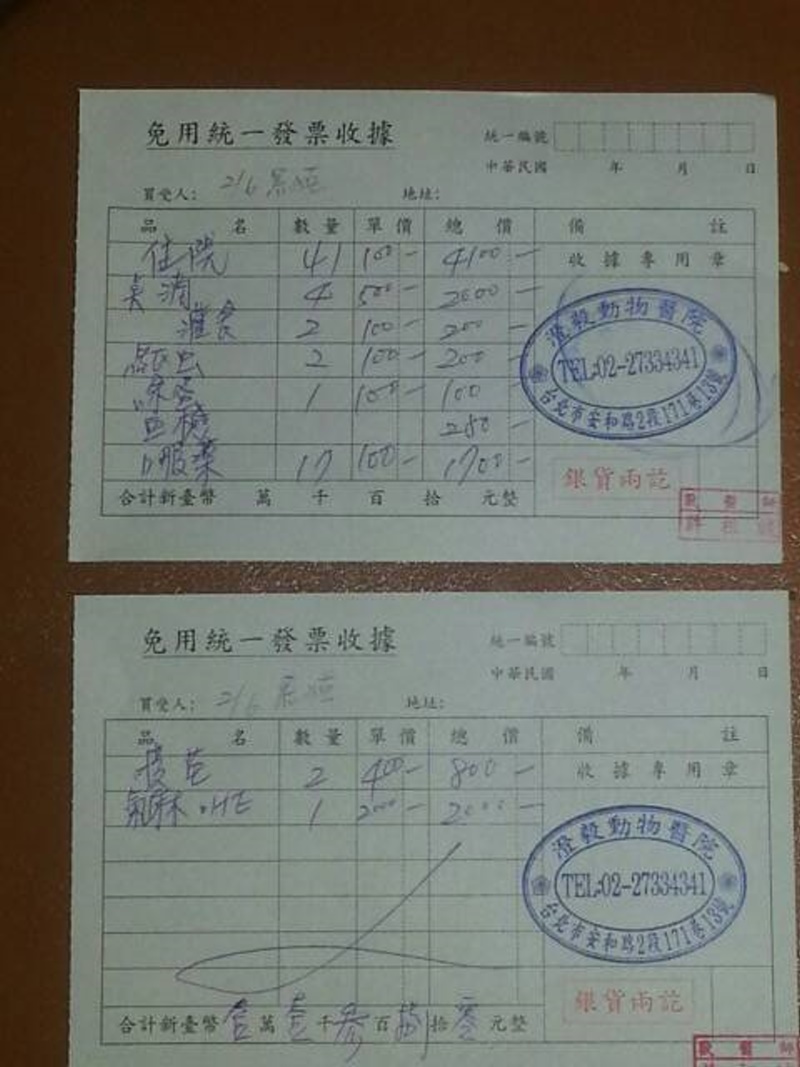 免用統一發票收據
統一編號
中華民國 年 月 日
買受人: 2/6 地址:
品名 數量 單價 總價 備註
住院 41 100- 4100-
收據專用章
4 500- 2000-
灌食 2 100- 200-
2 100- 200-
1 100- 100-
250-
口服藥 17 100- 1700-
澄毅動物醫院
TEL:02-27334341
台北市安和路2段171巷13號
銀貨兩訖
合計新臺幣 萬 千 百 拾 元整
獸醫師
免用統一發票收據
統一編號
中華民國 年 月 日
買受人: 2/6 地址:
品名 數量 單價 總價 備註
2 400- 800-
收據專用章
1 2000- 2000-
澄毅動物醫院
TEL:02-27334341
台北市安和路2段171巷13號
銀貨兩訖
合計新臺幣壹萬壹千參百 拾零元整
獸醫師